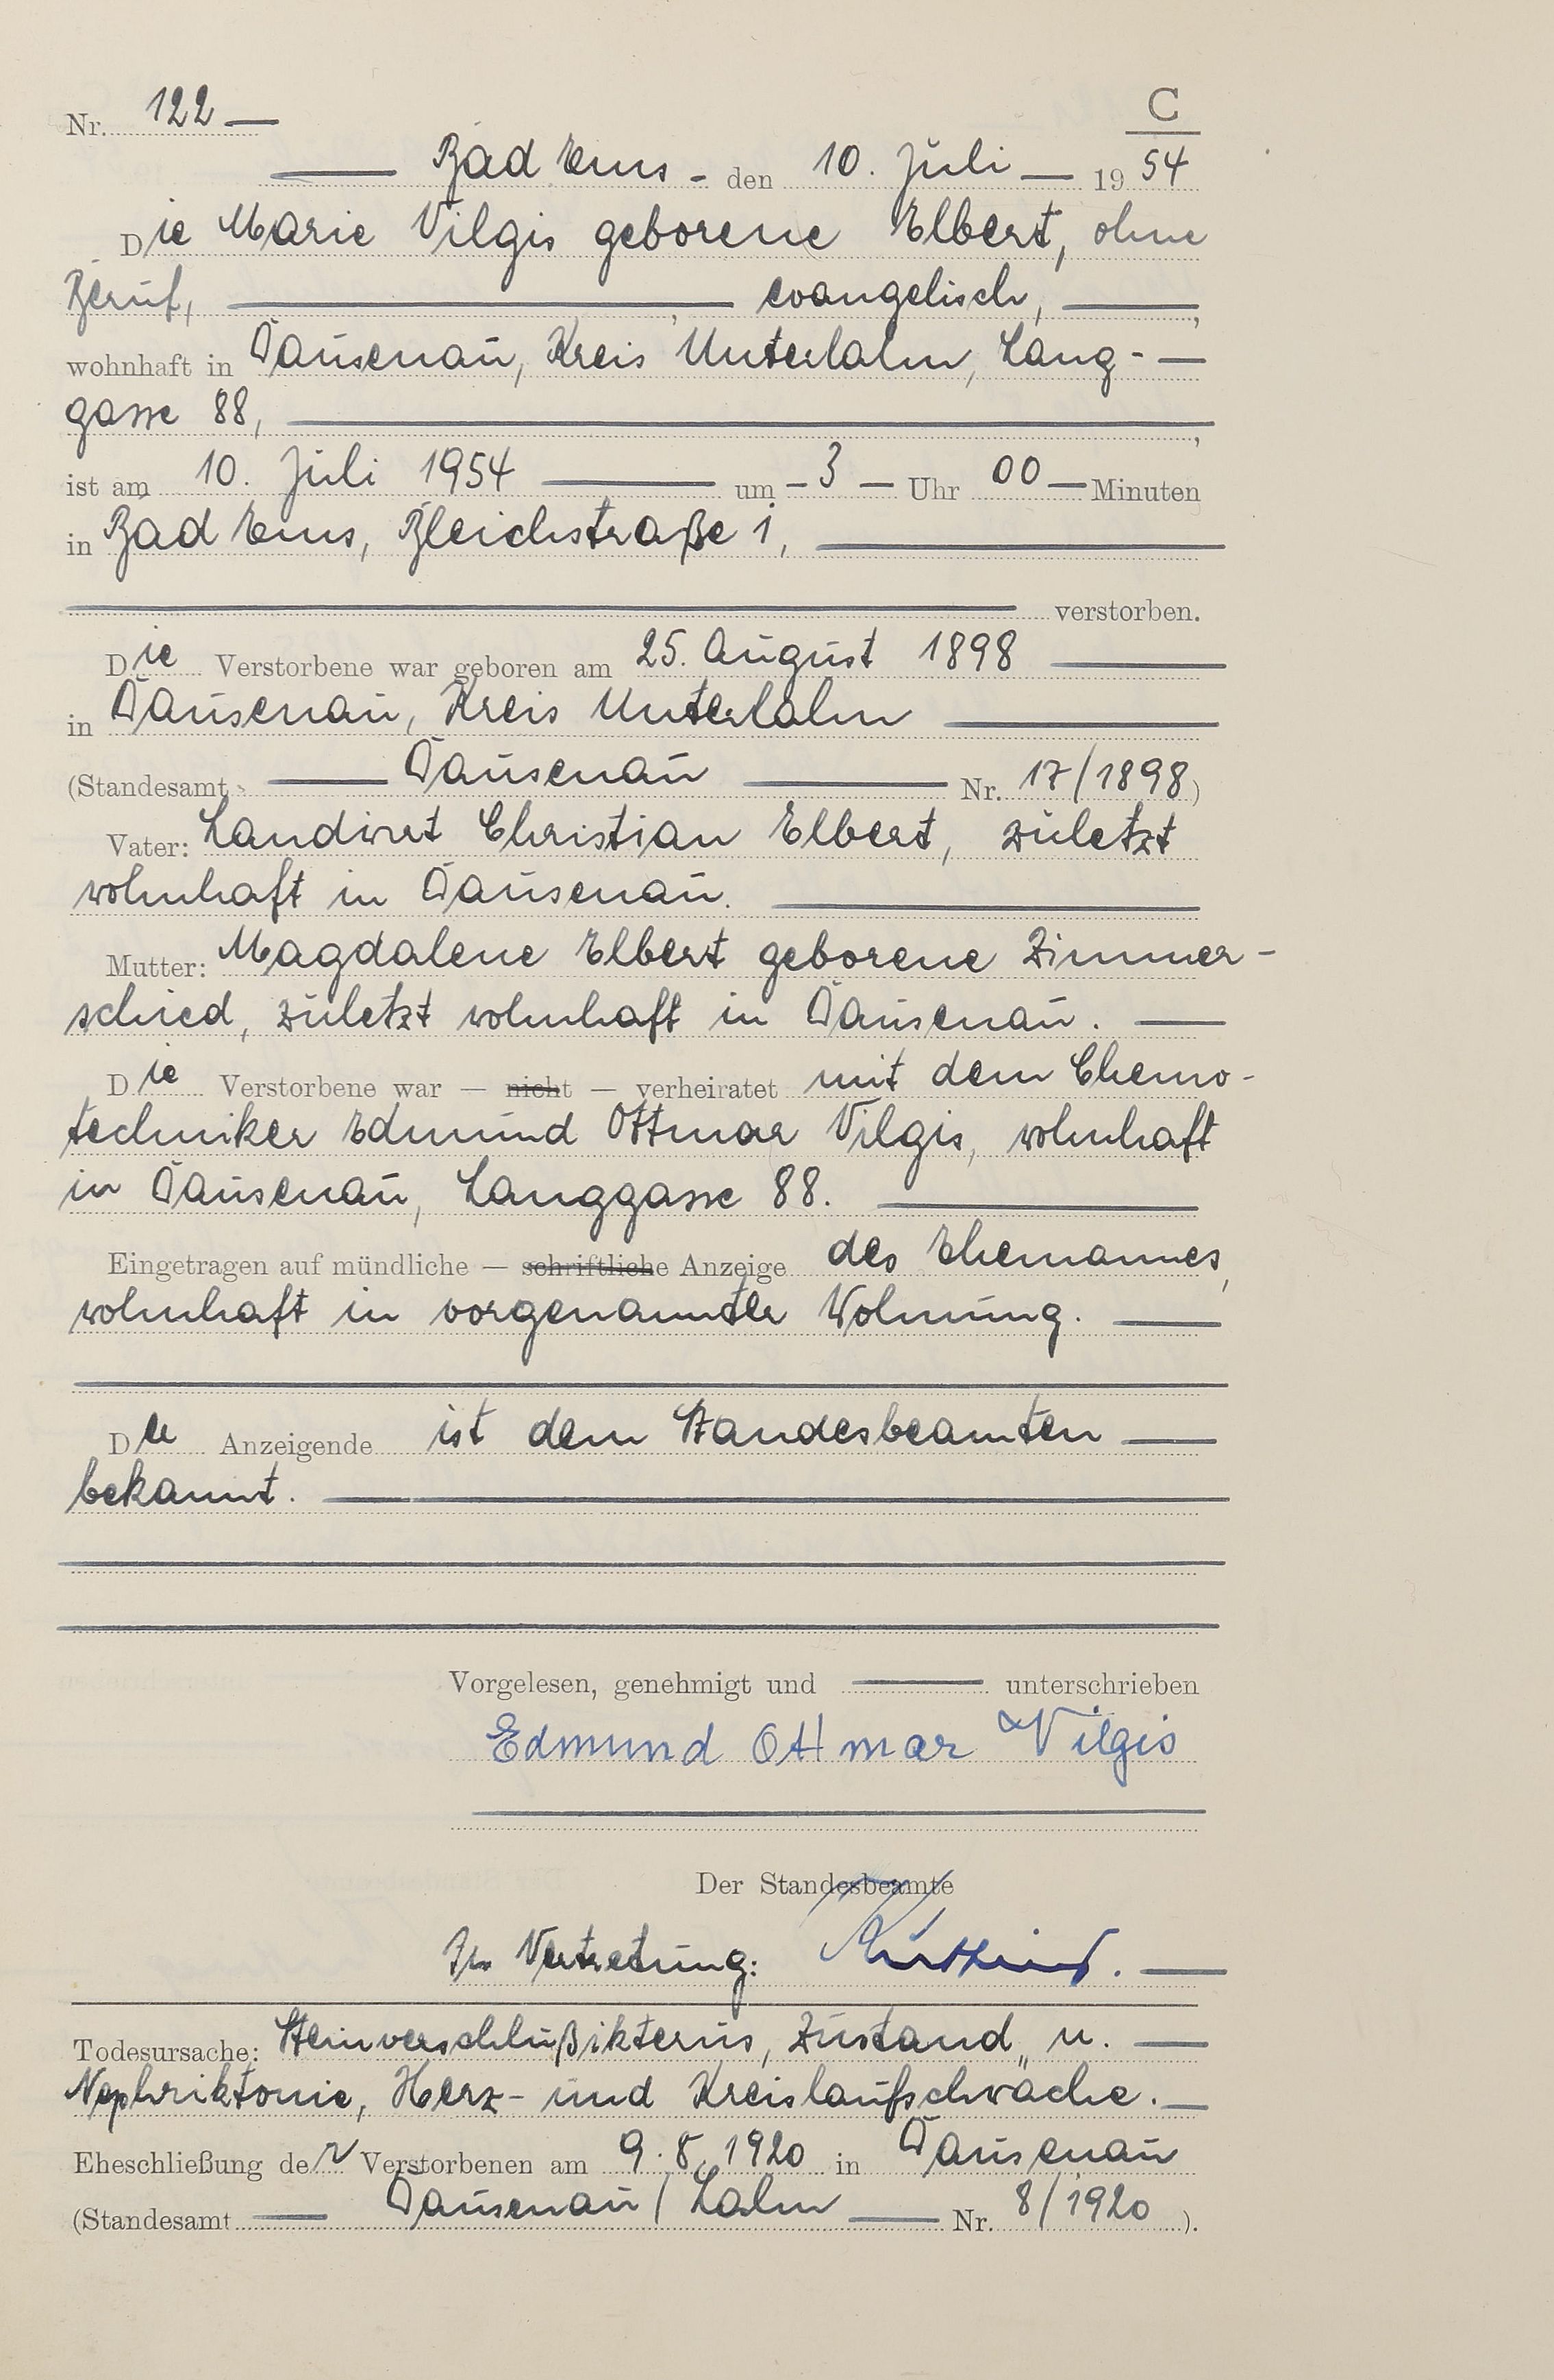 Nr. 122
C
Bad Ems - den 10. Juli 1954
Die Marie Vilgis geborene Elbert, ohne
Beruf, evangelisch,
wohnhaft in Dausenau, Kreis Unterlahn, Lang-
gasse 88,
ist am 10. Juli 1954 um - 3 - Uhr 00 - Minuten
in Bad Ems, Bleichstraße 1,
verstorben.
Die Verstorbene war geboren am 25. August 1898
in Dausenau, Kreis Unterlahn
(Standesamt Dausenau Nr. 17/1898)
Vater: Landwirt Christian Elbert, zuletzt
wohnhaft in Dausenau.
Mutter: Magdalene Elbert geborene Zimmer-
schied, zuletzt wohnhaft in Dausenau.
Die Verstorbene war — nicht — verheiratet mit dem Chemo-
techniker Edmund Ottmar Vilgis, wohnhaft
in Dausenau, Langgasse 88.
Eingetragen auf mündliche — schriftliche Anzeige des Ehemannes,
wohnhaft in vorgenannter Wohnung.
Der Anzeigende ist dem Standesbeamten
bekannt.
Vorgelesen, genehmigt und unterschrieben
Edmund Ottmar Vilgis
Der Standesbeamte
In Vertretung:
Todesursache: Steinverschlußikterus, Zustand „ n.
Nephriktomie, Herz- und Kreislaufschwäche.
Eheschließung der Verstorbenen am 9.8.1920 in Dausenau
(Standesamt Dausenau / Lahn Nr. 8/1920).